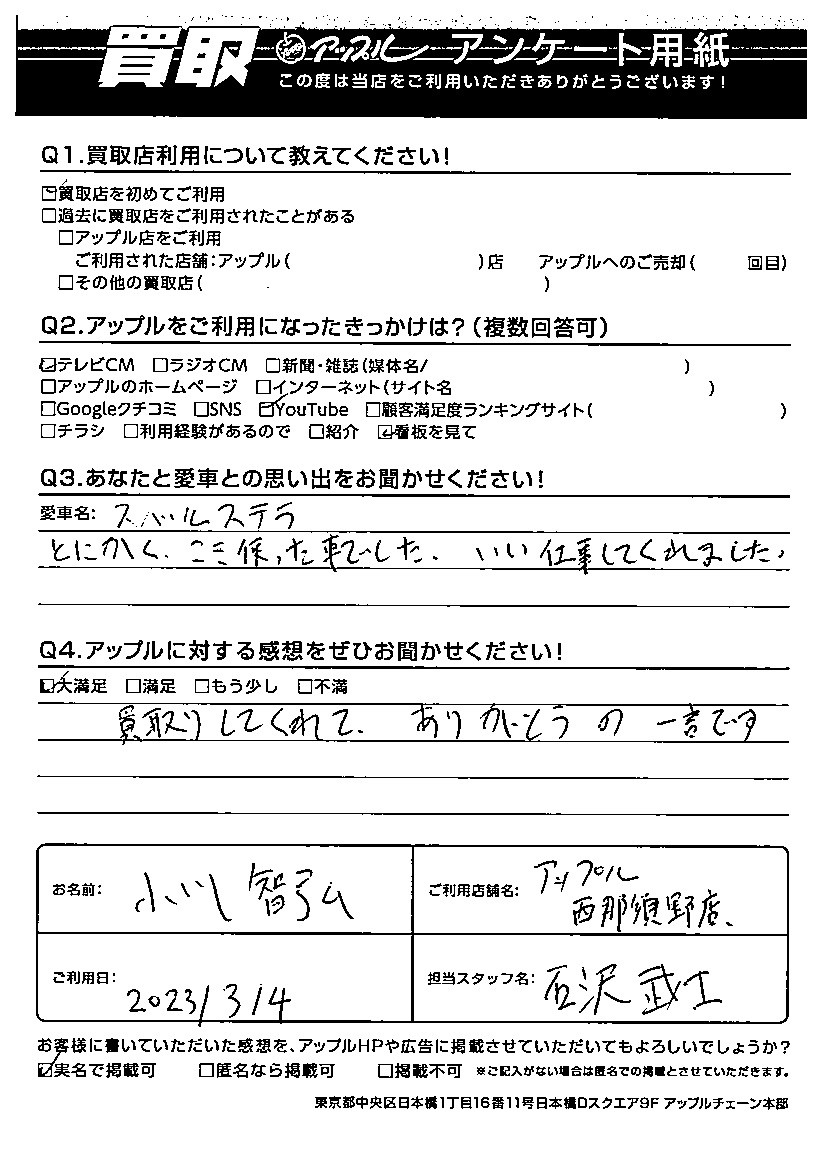 買取 アップル アンケート用紙
この度は当店をご利用いただきありがとうございます!
Q1.買取店利用について教えてください!
☑買取店を初めてご利用
□過去に買取店をご利用されたことがある
□アップル店をご利用
ご利用された店舗:アップル( )店 アップルへのご売却( 回目)
□その他の買取店( )
Q2.アップルをご利用になったきっかけは?(複数回答可)
☑テレビCM □ラジオCM □新聞・雑誌(媒体名/ )
□アップルのホームページ □インターネット(サイト名 )
□Googleクチコミ □SNS ☑YouTube □顧客満足度ランキングサイト( )
□チラシ □利用経験があるので □紹介 ☑看板を見て
Q3.あなたと愛車との思い出をお聞かせください!
愛車名: スバルステラ
とにかく、ここ保った車でした。いい仕事してくれました。
Q4.アップルに対する感想をぜひお聞かせください!
☑大満足 □満足 □もう少し □不満
買取りしてくれて、ありがとうの一言です
お名前: 小川 智弘
ご利用店舗名: アップル
西那須野店、
ご利用日: 2023/3/4
担当スタッフ名: 石沢 武士
お客様に書いていただいた感想を、アップルHPや広告に掲載させていただいてもよろしいでしょうか?
☑実名で掲載可 □匿名なら掲載可 □掲載不可 ※ご記入がない場合は匿名での掲載とさせていただきます。
東京都中央区日本橋1丁目16番11号日本橋Dスクエア9F アップルチェーン本部